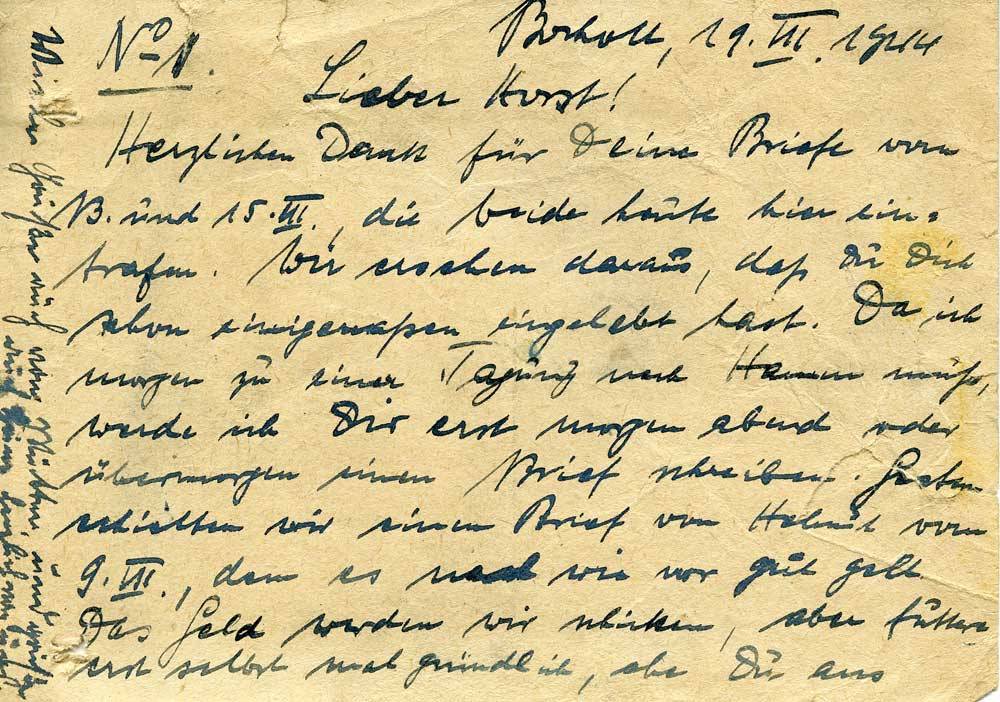 No 1.
Bocholt, 19. III. 1944
Lieber Horst!
Herzlichen Dank für Deine Briefe vom
13. und 15. III., die beide heute hier ein=
trafen. Wir ersehen daraus, daß Du Dich
schon einigermaßen eingelebt hast. Da ich
morgen zu einer Tagung nach Hamm muß,
werde ich Dir erst morgen abend oder
übermorgen einen Brief schreiben. Gestern
erhielten wir einen Brief von Helmut vom
9. III., dem es nach wie vor gut geht.
Das Geld werden wir schicken, aber füttere
erst selbst mal gründlich, ehe Du aus
von Mutter und